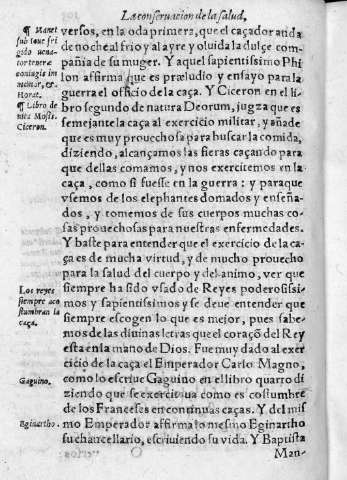 La conseruacion de la salud,
¶ Manet sub Ioue fri
gido uena-
tor tenere
coniugis im
memor, ex
Horat.
¶ Libro de
nica Mosis.
Ciceron.
Los reyes
siempre aco
stumbran la
caça.
Gaguino.
Eginartho.
versos, en la oda primera, que el caçador anda
de noche al frio y al ayre y oluida la dulçe com
pañia de su muger. Y aquel sapientissimo Phi
lon affirma que es præludio y ensayo para la
guerra el officio de la caça. Y Ciceron en el li-
bro segundo de natura Deorum, juzga que es
semejante la caça al exercicio militar, y añade
que es muy prouechosa para buscar la comida,
diziendo, alcançamos las fieras caçando para
que dellas comamos, y nos exercitemos en la
caça, como si fuesse en la guerra: y para que
vsemos de los elephantes domados y enseña-
dos, y tomemos de sus cuerpos muchas co-
sas prouechosas para nuestras enfermedades.
Y baste para entender que el exercicio de la ca-
ça es de mucha virtud, y de mucho prouecho
para la salud del cuerpo y del animo, ver que
siempre ha sido vsado de Reyes poderosissi-
mos y sapientissimos y se deue entender que
siempre escogen lo que es mejor, pues sabe-
mos de las diuinas letras que el coraçõ del Rey
esta en la mano de Dios. Fue muy dado al exer
cicio de la caça el Emperador Carlo Magno,
como lo escriue Gaguino en el libro quarto di
ziendo que se exercitaua como es costumbre
de los Franceses en continuas caças. Y del mis
mo Emperador affirma lo mesmo Eginartho
su chancellario, escriuiendo su vida. Y Baptista
Man-